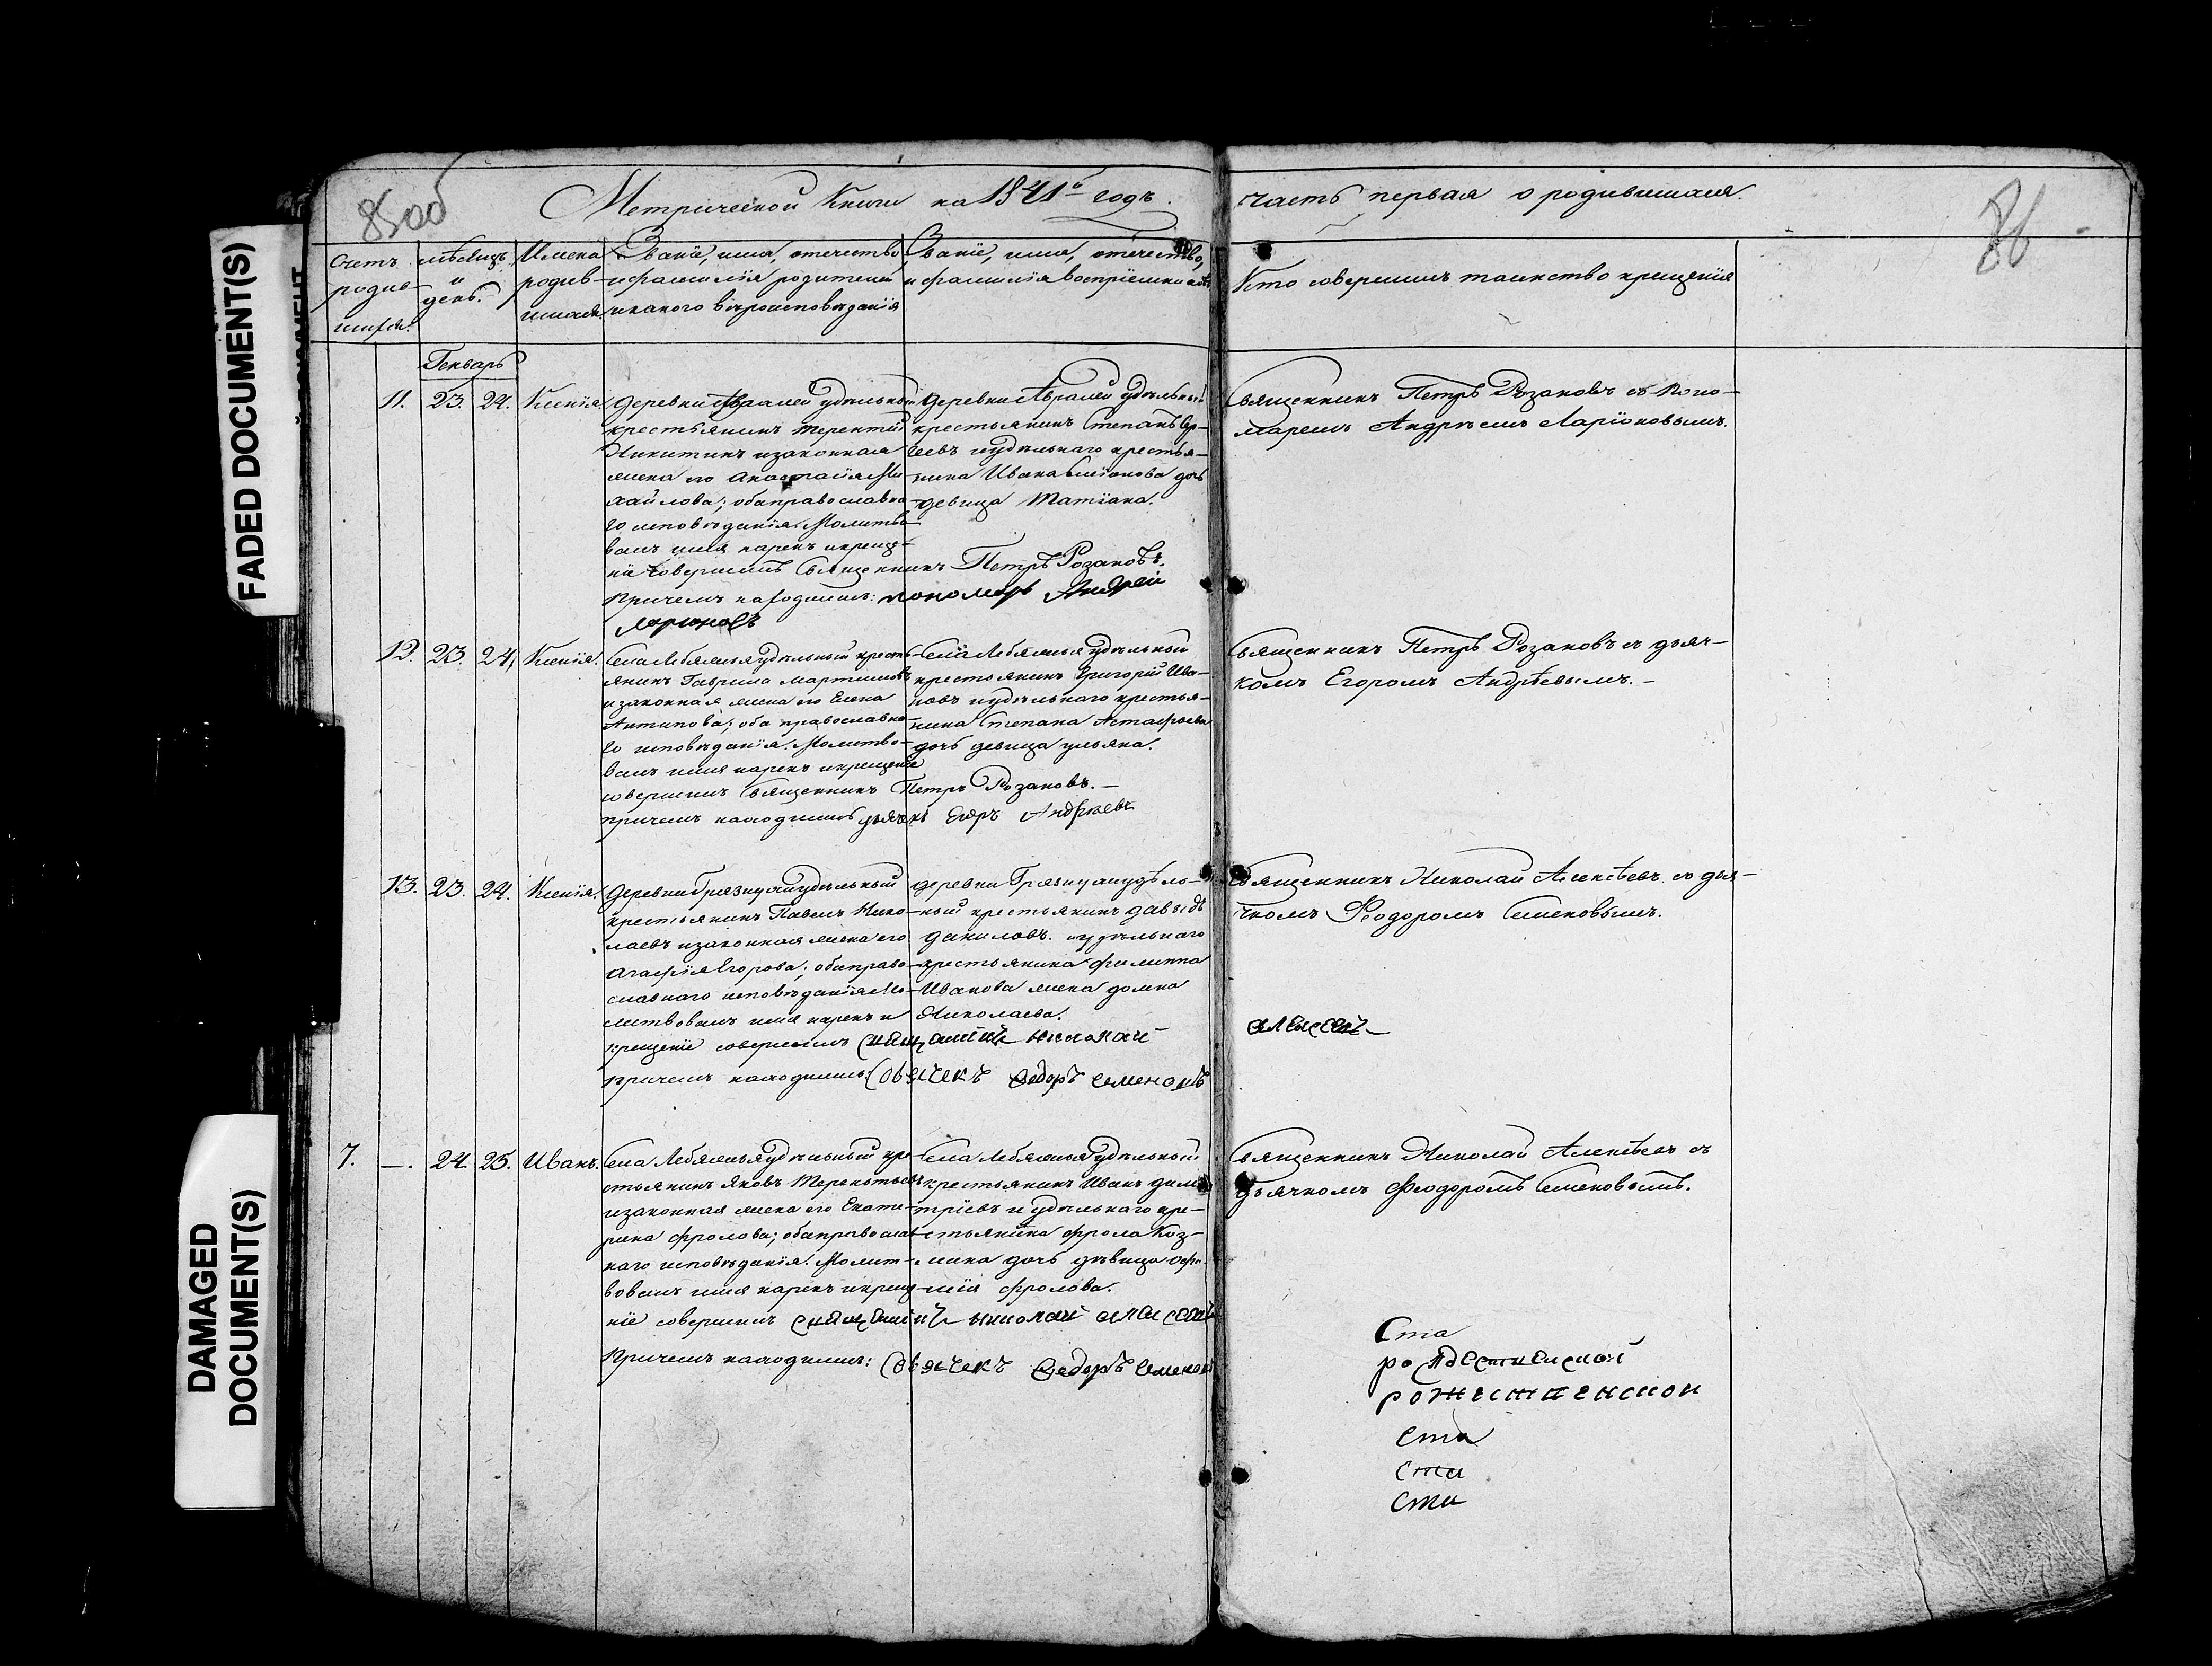 FADED DOCUMENT(S)
DAMAGED
DOCUMENT(S)
85об
86
Метрической Книги на 1841й годъ.
часть первая о родившихся.
Счетъ
родив-
шихся.
мѣсяцъ
и
день.
Имена
родив-
шихся.
Званіе, имя, отечество
и фамилія родителей
и какого вѣроисповѣданія
Званіе, имя, отечество,
и фамилія воспріемниковъ
Кто совершилъ таинство крещенія
Генварь
11. 23. 24. Ксенія.
деревни Авралей удѣльный
крестьянинъ Терентій
Никитинъ и законная
жена его Анастасія Ми-
хайлова; оба православна-
го исповѣданія. Молитво-
валъ имя нарекъ и креще-
ніе совершилъ Священникъ Петръ Розановъ.
Причемъ находился: пономарь Андрей
Ларионовъ
деревни Авралей удѣльный
крестьянинъ Степанъ Сер-
геевъ и удѣльнаго крестья-
нина Ивана дочь
девица Татіана.
Священникъ Петръ Розановъ съ Поно-
маремъ Андреемъ Ларіоновымъ.
12. 23. 24. Ксенія.
Села Лебяжья удѣльный кресть-
янинъ Гаврила Мартиновъ
и законная жена его Елена
Антипова; оба православна-
го исповѣданія. Молитво-
валъ имя нарекъ и крещеніе
совершилъ Священникъ Петръ Розановъ.—
причемъ находился дьячекъ Егоръ Андреевъ
Села Лебяжья удѣльный
крестьянинъ Григорій Ива-
новъ и удѣльнаго крестья-
нина Степана Астафьева
дочь девица ульяна.
Священникъ Петръ Розановъ съ дьяч-
комъ Егоромъ Андрѣевымъ.—
13. 23. 24. Ксенія.
деревни Грязнухи удѣльный
крестьянинъ Павелъ Нико-
лаевъ и законная жена его
Агафія Егорова; оба право-
славнаго исповѣданія. Мо-
литвовалъ имя нарекъ и
крещеніе совершилъ священникъ николай
алексеевъ
причемъ находился: дьячекъ Федоръ семеновъ
деревни Грязнухи удѣль-
ный крестьянинъ давыдъ
даниловъ. и удѣльнаго
крестьянина филиппа
Иванова жена домна
Николаева.
Священникъ Николай Алексѣевъ съ дья-
чкомъ Феодоромъ Семеновымъ.
7. —. 24. 25. Иванъ.
Села Лебяжья удѣльный кре-
стьянинъ Яковъ Терентьевъ
и законная жена его Екате-
рина фролова; оба православ-
наго исповѣданія. Молит-
вовалъ имя нарекъ и креще-
ніе совершилъ священникъ николай алексеевъ
Причемъ находился: дьячекъ Федоръ семеновъ
Села Лебяжья удѣльный
крестьянинъ Иванъ дими-
тріевъ и удѣльнаго кре-
стьянина фрола Коз-
мина дочь дѣвица Офи-
мія фролова.
Священникъ Николай Алексѣевъ съ
дьячкомъ Феодоромъ Семеновымъ.
Ста
рождественской
рожественской
ста
ста
ста